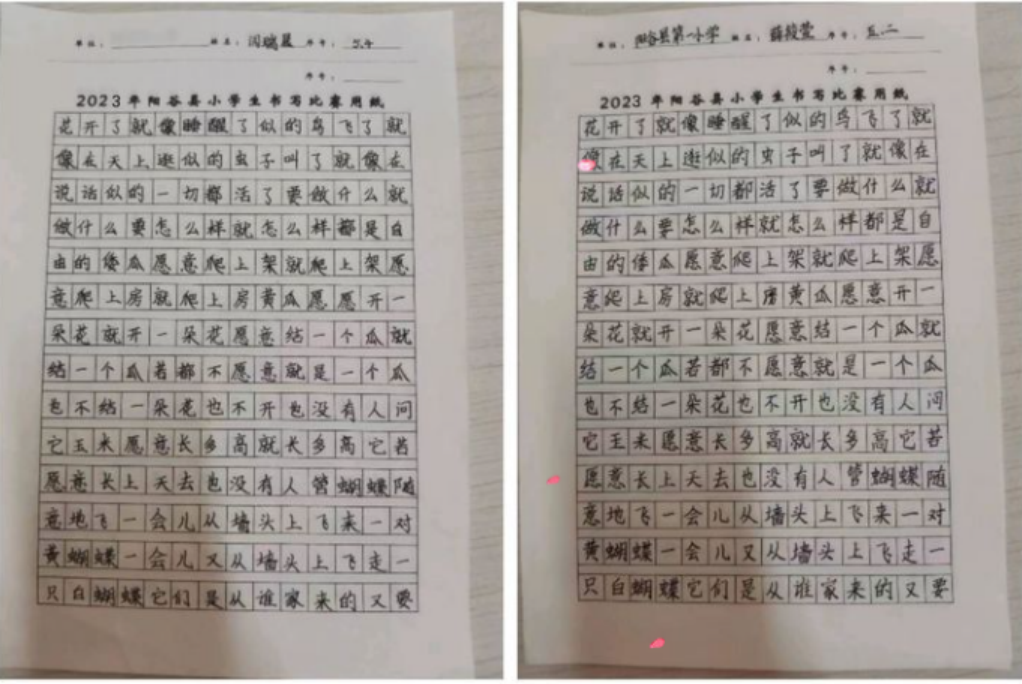 单位： 姓名：闫瑞晨 序号：5.4
序号：
2023年阳谷县小学生书写比赛用纸
花开了就像睡醒了似的鸟飞了就
像在天上逛似的虫子叫了就像在
说话似的一切都活了要做什么就
做什么要怎么样就怎么样都是自
由的倭瓜愿意爬上架就爬上架愿
意爬上房就爬上房黄瓜愿愿开一
朵花就开一朵花愿意结一个瓜就
结一个瓜若都不愿意就是一个瓜
也不结一朵花也不开也没有人问
它玉米愿意长多高就长多高它若
愿意长上天去也没有人管蝴蝶随
意地飞一会儿从墙头上飞来一对
黄蝴蝶一会儿又从墙头上飞走一
只白蝴蝶它们是从谁家来的又要
单位：阳谷县第一小学 姓名：薛筱萱 序号：五.二
序号：
2023年阳谷县小学生书写比赛用纸
花开了就像睡醒了似的鸟飞了就
像在天上逛似的虫子叫了就像在
说话似的一切都活了要做什么就
做什么要怎么样就怎么样都是自
由的倭瓜愿意爬上架就爬上架愿
意爬上房就爬上房黄瓜愿意开一
朵花就开一朵花愿意结一个瓜就
结一个瓜若都不愿意就是一个瓜
也不结一朵花也不开也没有人问
它玉米愿意长多高就长多高它若
愿意长上天去也没有人管蝴蝶随
意地飞一会儿从墙头上飞来一对
黄蝴蝶一会儿又从墙头上飞走一
只白蝴蝶它们是从谁家来的又要